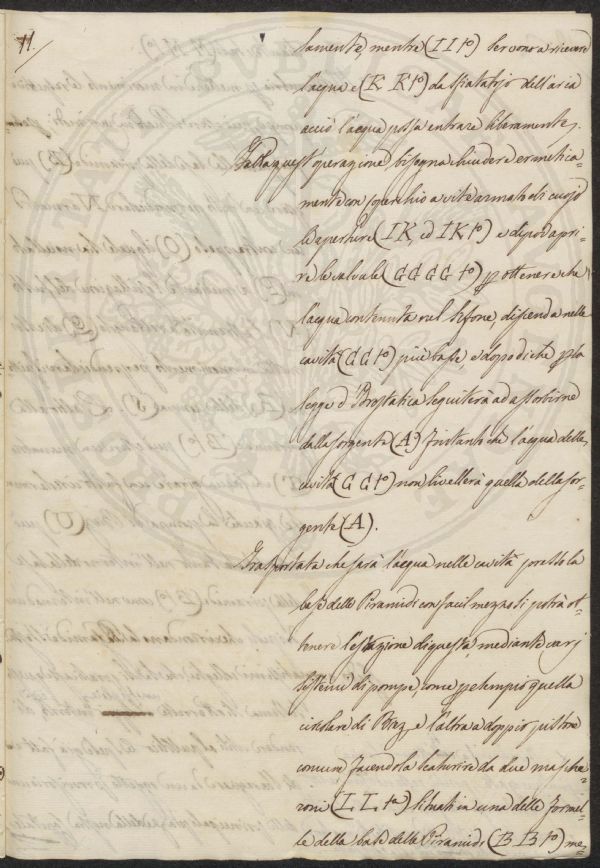 11.
lamente, mentre (I I tº) servono a ricevere
l'acqua e (K Ktº) da sfiatatojo dell'aria
acciò l'acqua possa entrare liberamente.
Fatta quest'operazione, bisogna chiudere ermetica=
mente con coperchio a vite armato di cuojo
le aperture (IK, ed IKtº) e dipoi apri=
re le valvule (G G G G tº) per ottenere che
l'acqua contenuta nel sifone, discenda nelle
cavità (G G tº) più basse e doppo di che per la
legge d'Idrostatica seguiterà ad assorbirne
dalla sorgente (A) finitantochè l'acqua delle
cavità (G G tº) non livellerà quella della sor=
gente (A).
Trasportata che sarà l'acqua nelle cavità presso la
base delle Piramidi con facil mezzo si potrà ot=
tenere l'estrazione di questa, mediante varj
sistemi di pompe, come per esempio quella
circolare di e l'altra a doppio pistone
comune facendola scaturire da due masche=
roni (L L tº) situati in una delle formel=
le della base delle Piramidi (B B tº) me=